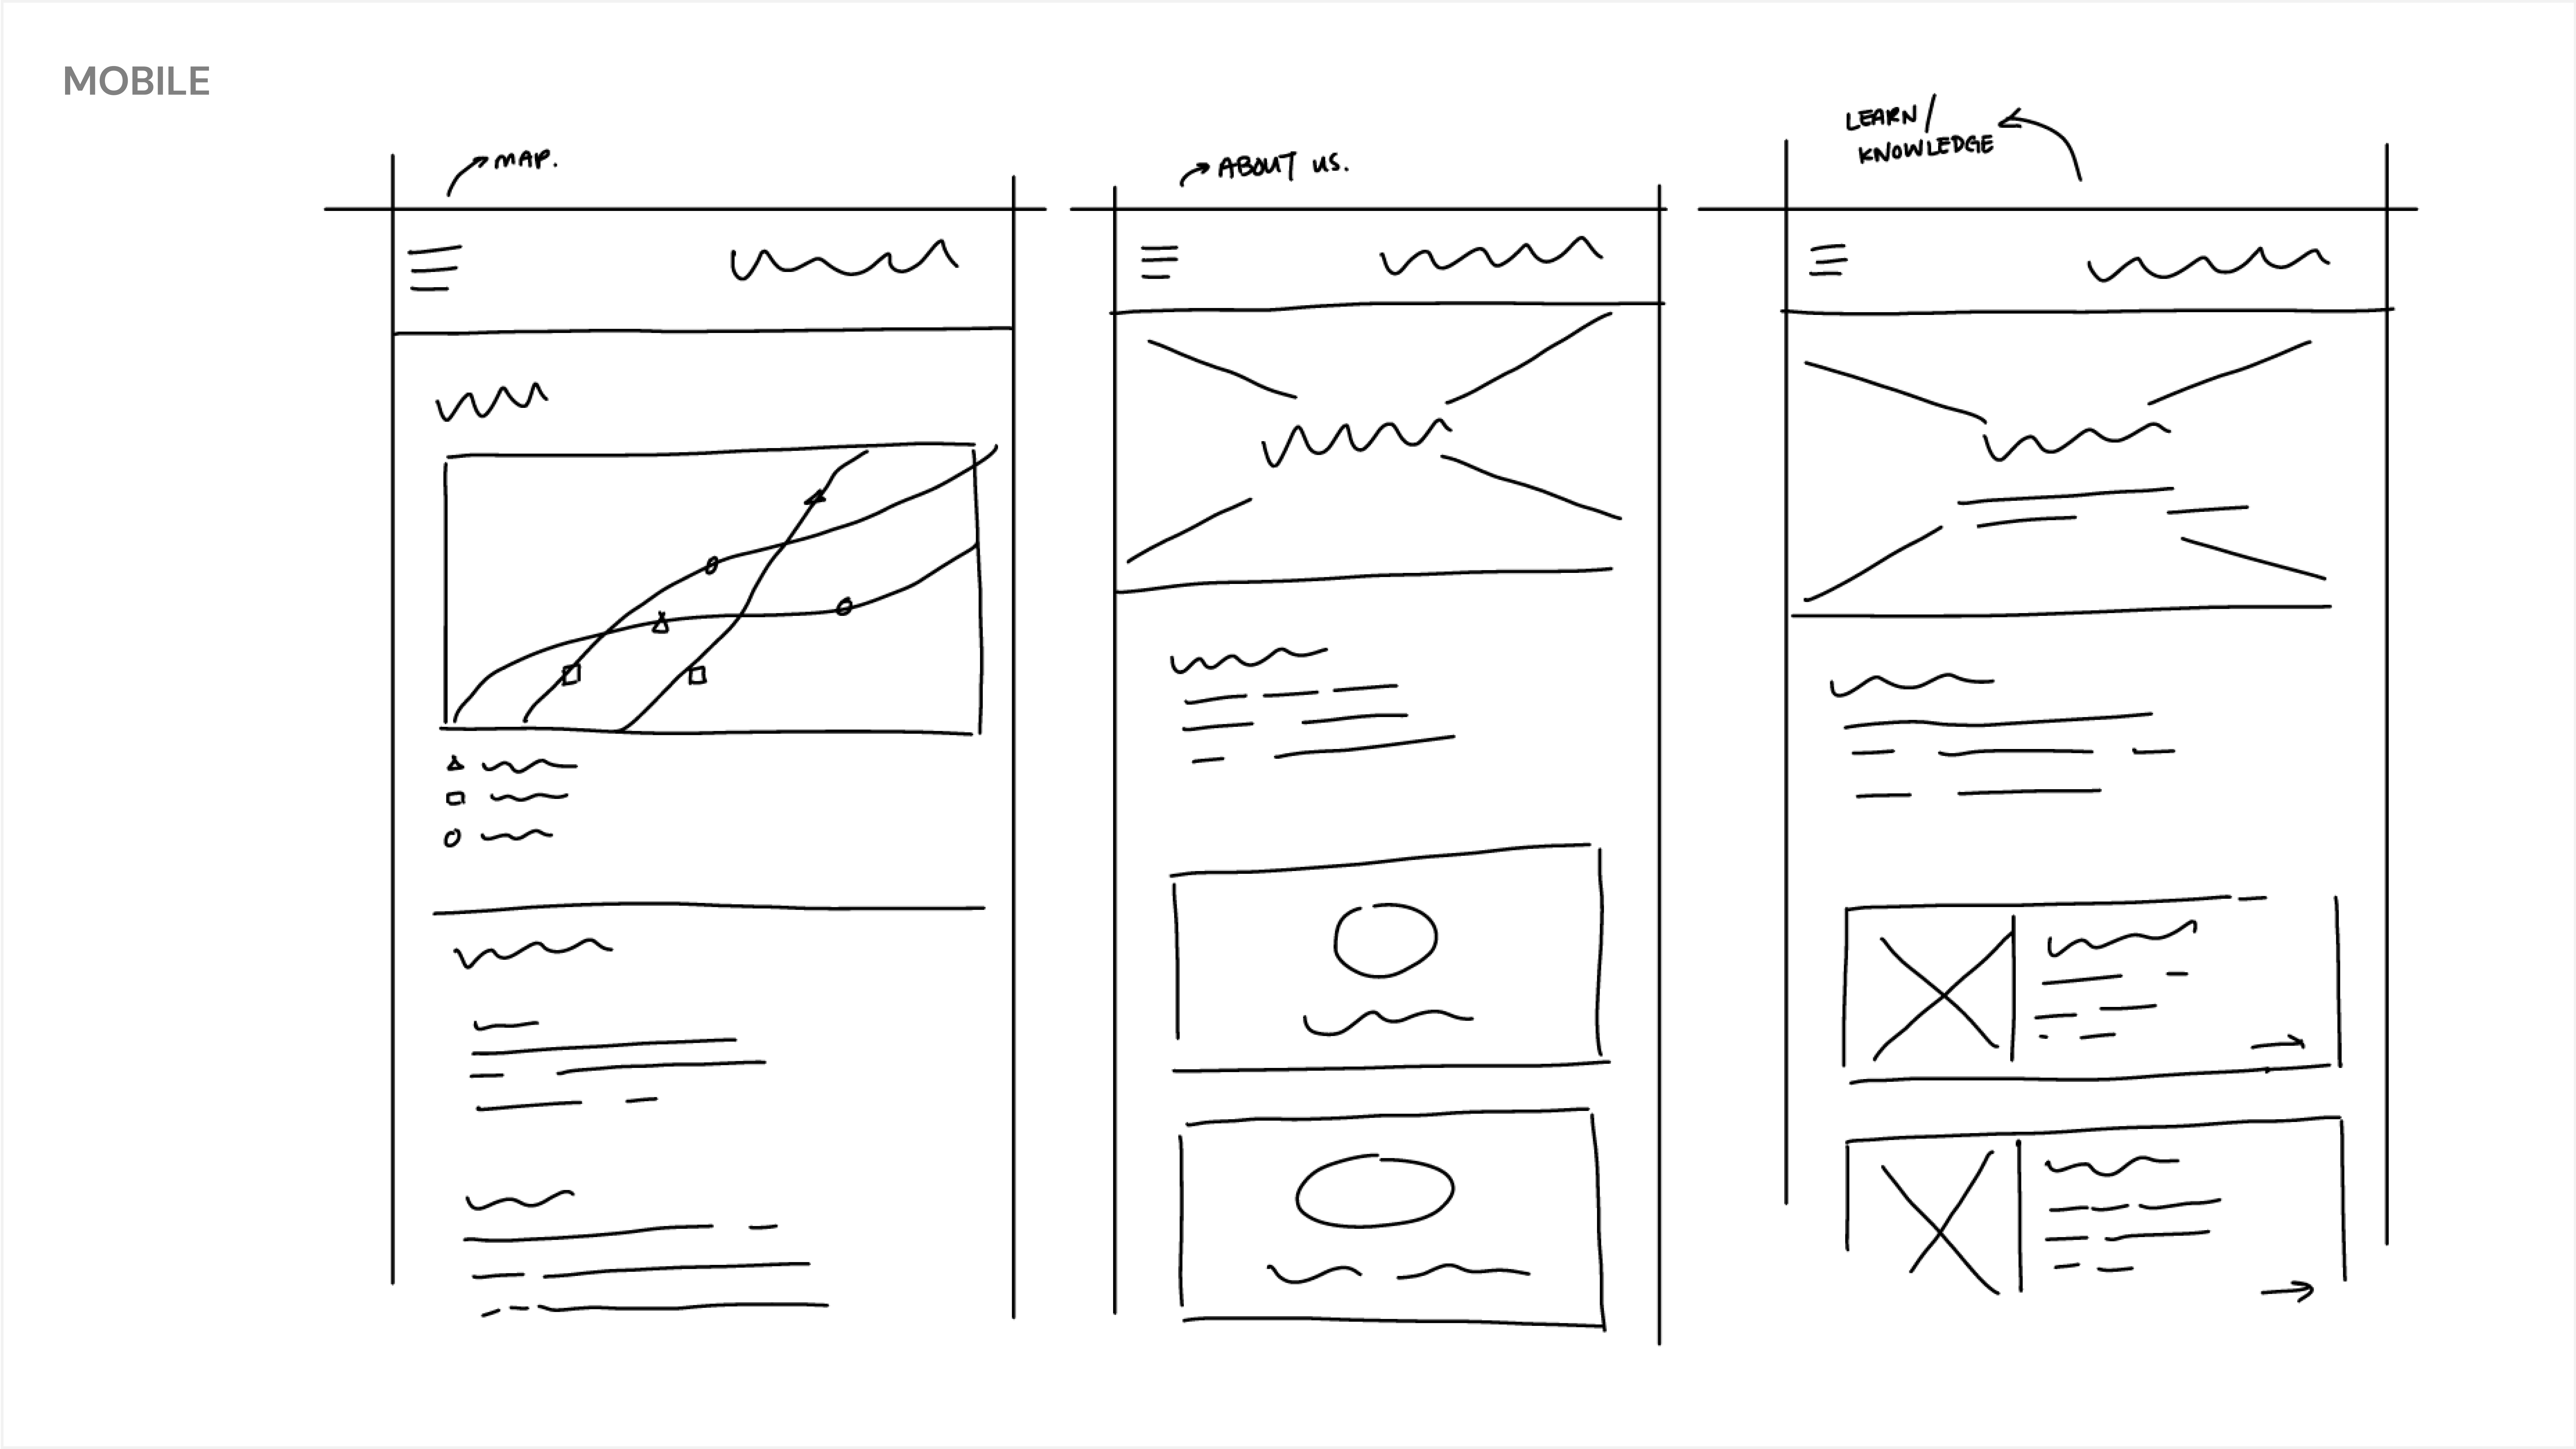 MOBILE
MAP.
ABOUT US.
LEARN/
KNOWLEDGE